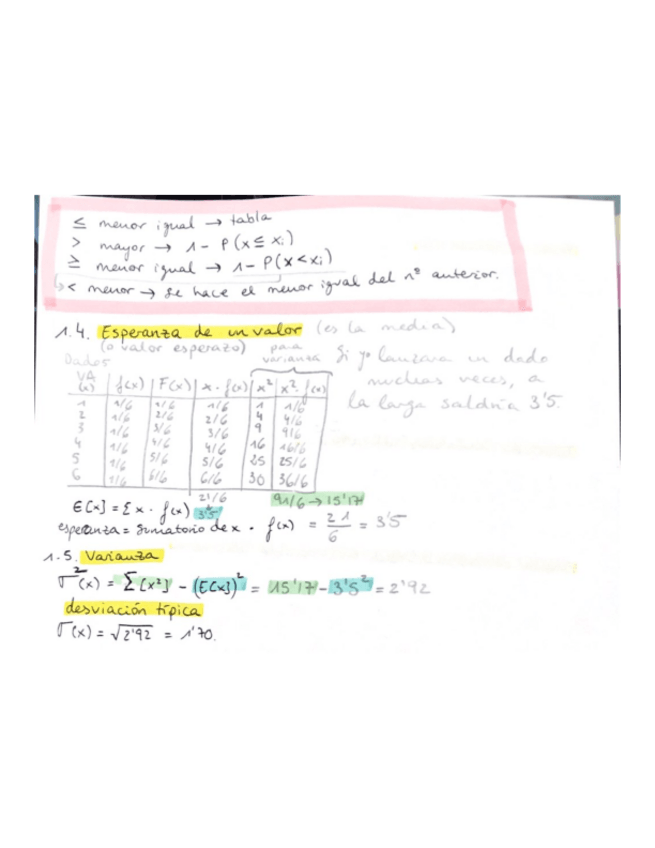 ≤ menor igual → tabla
> mayor → 1 - P(x ≤ xi)
≥ menor igual → 1 - P(x < xi)
↳ < menor → se hace el menor igual del nº anterior.
1.4. Esperanza de un valor (es la media)
(o valor esperazo)
para varianza
Si yo lanzara un dado
muchas veces, a
la larga saldría 3'5.
Dados
VA (x) | f(x) | F(x) | x · f(x) | x² | x² · f(x)
1 | 1/6 | 1/6 | 1/6 | 1 | 1/6
2 | 1/6 | 2/6 | 2/6 | 4 | 4/6
3 | 1/6 | 3/6 | 3/6 | 9 | 9/6
4 | 1/6 | 4/6 | 4/6 | 16 | 16/6
5 | 1/6 | 5/6 | 5/6 | 25 | 25/6
6 | 1/6 | 6/6 | 6/6 | 30 | 36/6
21/6
3'5
91/6 → 15'17
E[x] = Σ x · f(x)
esperanza = sumatorio de x · f(x) = 21/6 = 3'5
1.5. Varianza
σ²(x) = Σ[x²] - (E[x])² = 15'17 - 3'5² = 2'92
desviación típica
σ(x) = √2'92 = 1'70.